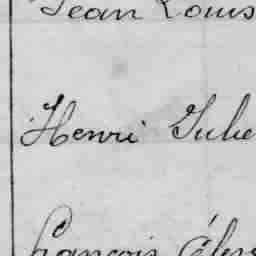 Jean Louis
Henri Jule
François